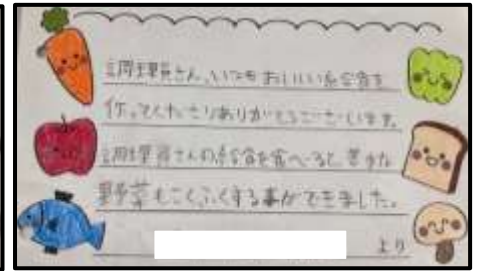 調理員さん、いつもおいしい給食を
作ってくださりありがとうございます。
調理員さんの給食を食べると、苦手な
野菜もこくふくする事ができました。
より